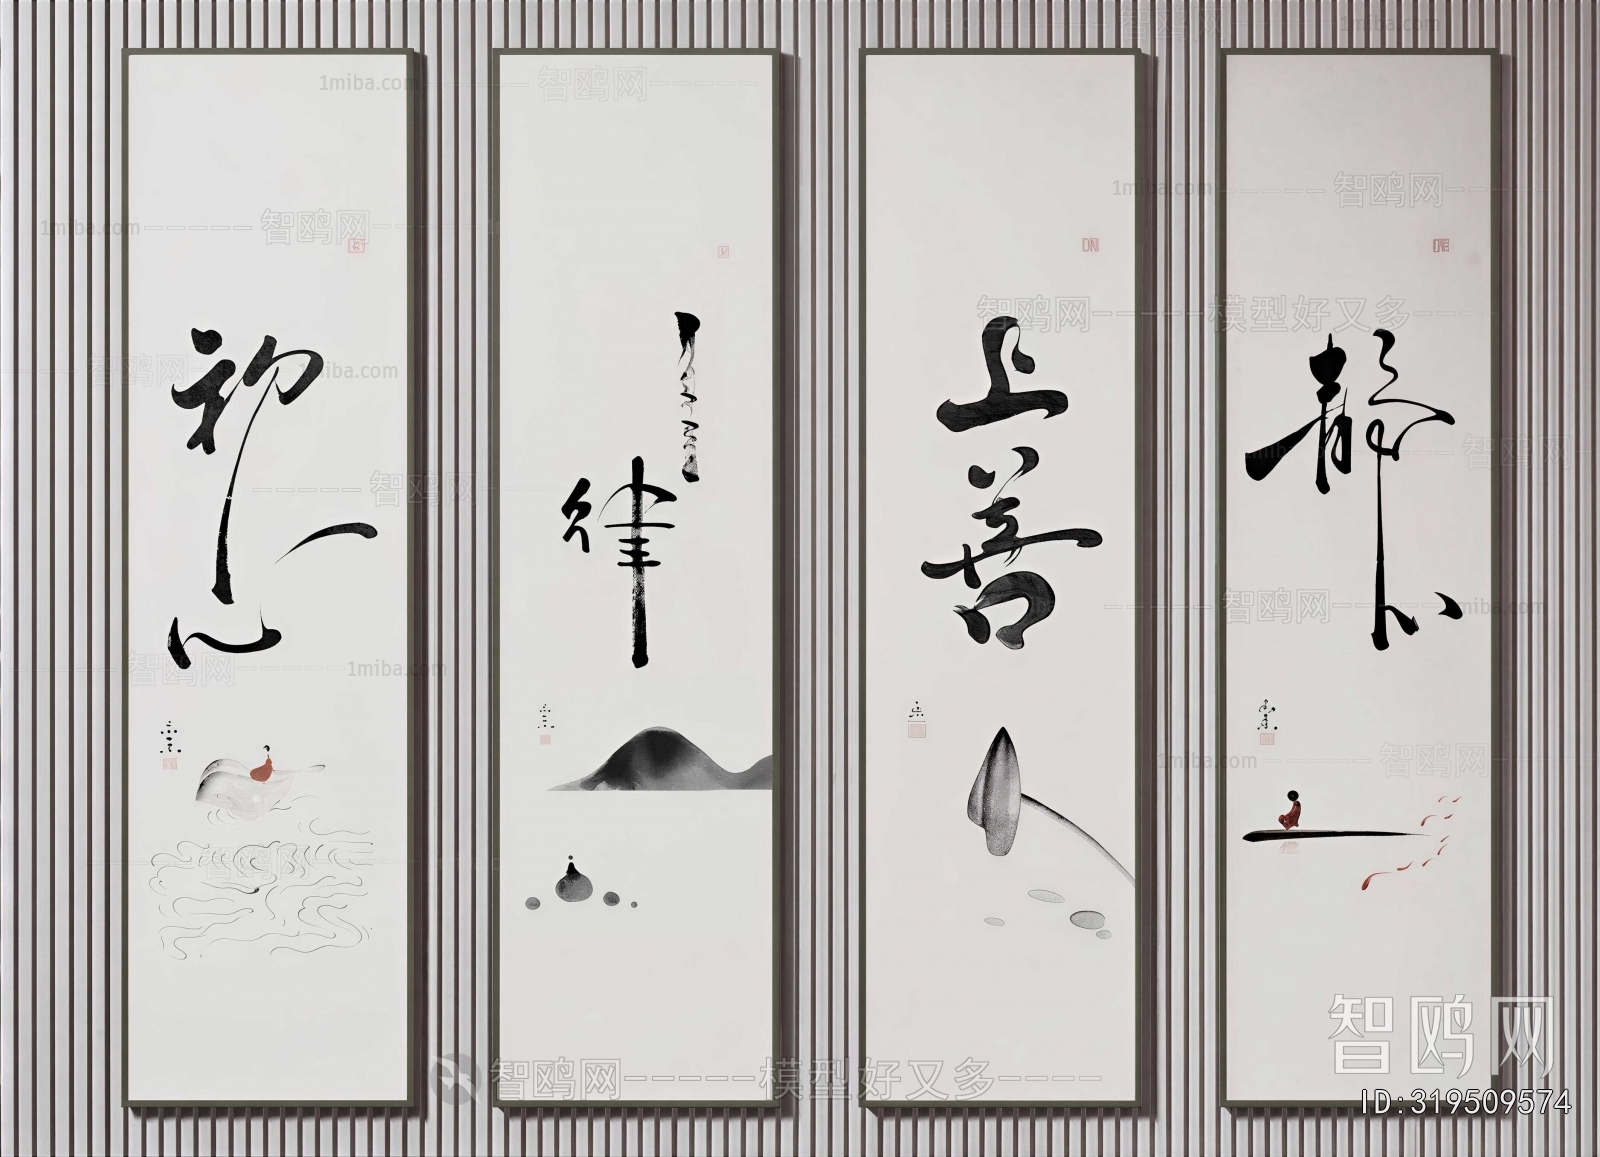 初心
自律
上善
静心
1miba.com
智鸥网
模型好又多
智鸥网-----模型好又多----
智鸥网
ID:319509574